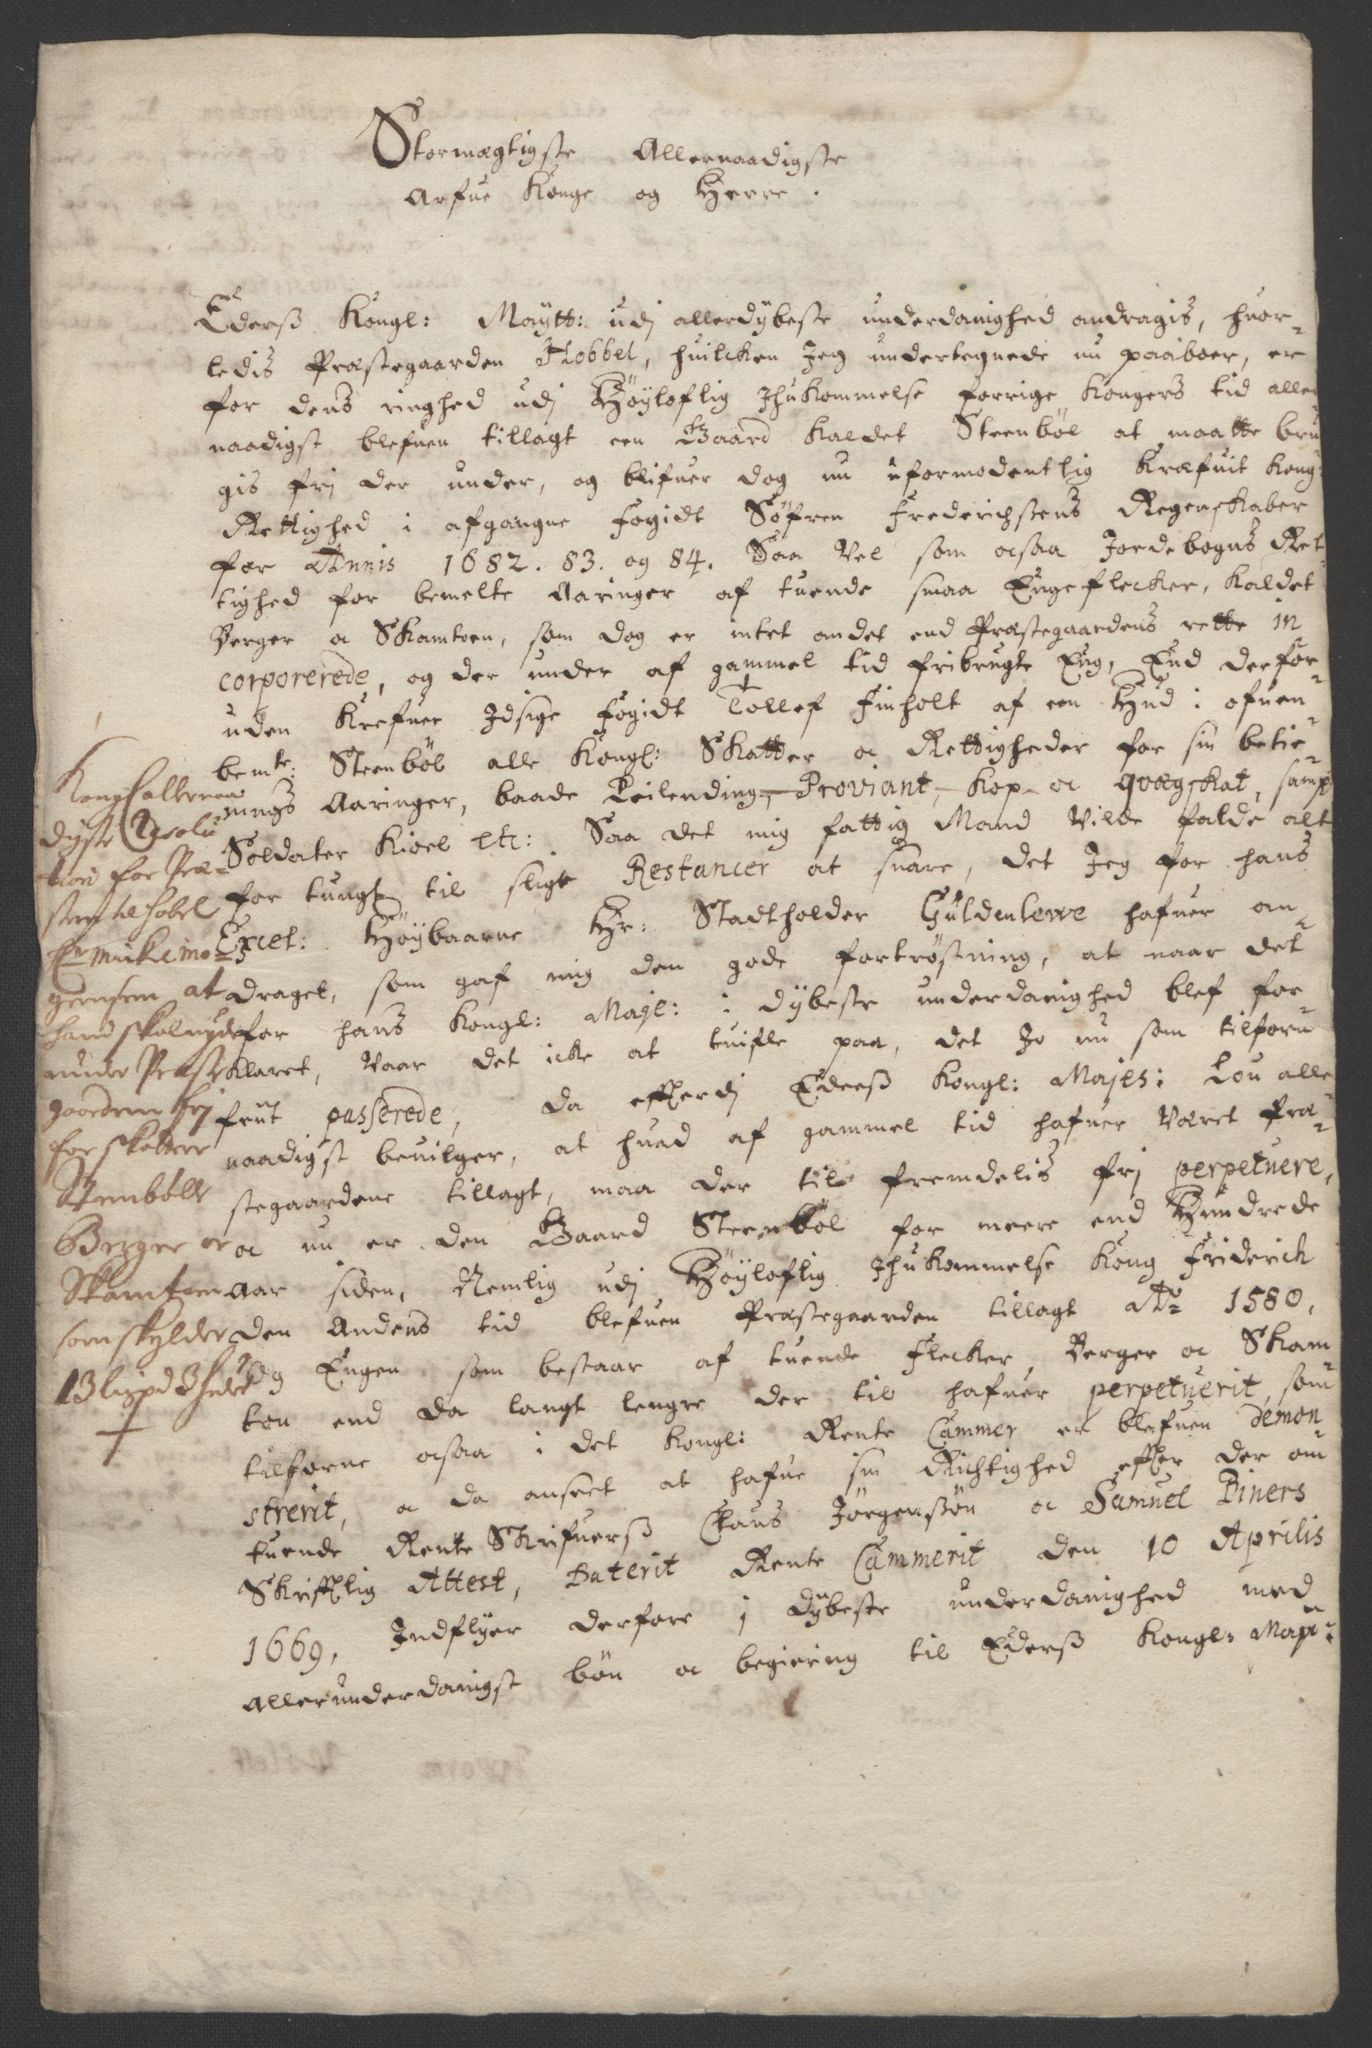 Stormegtigste Allernaadigste
Arfue Konge og Herre.
Ederß Kongl: Maÿtt: udj allerdÿbeste underdanighed andragis, huor-
ledis Præstegaarden Hobbel, huilcken Jeg undertegnede nu paaboer, er
for dens ringhed udj Høÿloflig Ihukommelse forrige Kongers tid aller
naadigst blefuen tillagt een Gaard kaldet Steenbøl at maatte bru
gis frj der under, og blifuer dog nu uformodentlig Krefuit Kong:
Rettighed i afgangne fogidt Søfren Frederichsens Regenskaber
for Annis 1682. 83. og 84. Saa vel som ocsaa Jordebogens Ret
tighed for bemelte Aaringer af tuende smaa Engeflecker, kaldet
Berger oc Skamtoen, som dog er intet andet end Præstegaardens rette in
corporerede, og der under af gammel tid fribrugte Eng, End derfor-
uden Krefuer Idsige fogidt Tollef Finholt af een Hud i ofuen
bemte: Steenbøl alle Kongl: Skatter oc Rettigheder for sin betie-
nings Aaringer, baade Leilending,- Proviant,- Kop- oc Qvægskat, samp
Soldater Kioel etc: Saa det mig fattig Mand vilde falde alt
for tungt til sligt Restancer at suare, det Jeg for hans
Excel: Høÿbaarne Hr: Stadtholder Gÿldenlewe hafuer an-
dragel, som gaf mig den gode fortrøstning, at naar det
for hans Kongl: Majt: i dÿbeste underdanighed blef for
klaret, vaar det icke at tuifle paa, det Jo nu som tilforn
frut passerede, da effterdj Ederß Kongl: Majes: Lou aller
naadigst beuilger, at huad af gammel tid hafuer veret Præ-
stegaardene tillagt, maa der til fremdelis frj perpetuere,
oc nu er den Gaard Steenbøl for meere end Hundrede
Aar siden, Nemlig udj Høÿloflig Ihukommelse Kong Friderich
den Andens tid blefuen Præstegaarden tillagt Ao 1580,
og Engen som bestaar af tuende Flecker, Berger oc Skam
ton end da langt lengre der til hafuer perpetuerit, som
tilforne ocsaa i det Kongl: Rente Cammer er blefuen demon
strerit, oc da anseet at hafue sin Richtighed effter der om
tuende Rente Skrifuerß Claus Jørgensøn oc Samuel Piners
Skrifftlig Attest, Daterit Rente Cammerit den 10 Aprilis
1669, Indflÿer derfore j dÿbeste underdanighed med
allerunderdanigst bøn oc begiering til Ederß Kongl: Majt:
Kongl allernaa
digste Resolu
tion for Præ-
sten til Hobel
Er mickl mo-
gensen at
hand skal nyde
under Præste
gaarden frj
for skatter
Stenbølle
Berger oc
Skamtoen
som skylder
13 lispd 3 huder